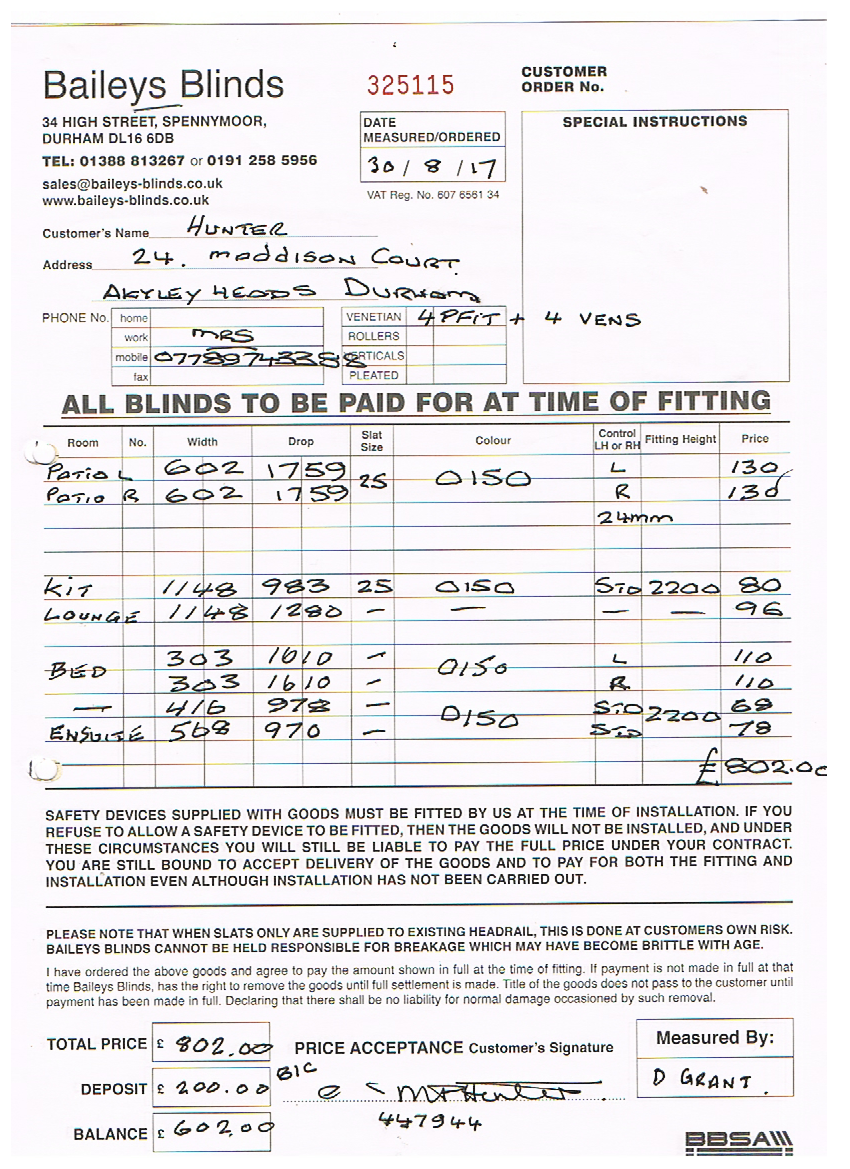 Baileys Blinds
34 HIGH STREET, SPENNYMOOR,
DURHAM DL16 6DB
TEL: 01388 813267 or 0191 258 5956
sales@baileys-blinds.co.uk
www.baileys-blinds.co.uk
325115
DATE
MEASURED/ORDERED
30/8/17
VAT Reg. No. 607 6561 34
CUSTOMER
ORDER No.
SPECIAL INSTRUCTIONS
Customer's Name HUNTER
Address 24. MADDISON COURT
AKYLEY HEADS DURHAM
PHONE No. home
work MRS
mobile 07789743388
fax
VENETIAN 4 PFIT + 4 VENS
ROLLERS
VERTICALS
PLEATED
ALL BLINDS TO BE PAID FOR AT TIME OF FITTING
Room No. Width Drop Slat Size Colour Control LH or RH Fitting Height Price
PATIO L 602 1759 25 0150 L 130
PATIO R 602 1759 R 130
24mm
KIT 1148 983 25 0150 STD 2200 80
LOUNGE 1148 1280 - - - - 96
BED 303 1610 - 0150 L 110
303 1610 - R 110
- 416 978 - 0150 STD 2200 68
ENSUITE 568 970 - STD 78
£802.00
SAFETY DEVICES SUPPLIED WITH GOODS MUST BE FITTED BY US AT THE TIME OF INSTALLATION. IF YOU
REFUSE TO ALLOW A SAFETY DEVICE TO BE FITTED, THEN THE GOODS WILL NOT BE INSTALLED, AND UNDER
THESE CIRCUMSTANCES YOU WILL STILL BE LIABLE TO PAY THE FULL PRICE UNDER YOUR CONTRACT.
YOU ARE STILL BOUND TO ACCEPT DELIVERY OF THE GOODS AND TO PAY FOR BOTH THE FITTING AND
INSTALLATION EVEN ALTHOUGH INSTALLATION HAS NOT BEEN CARRIED OUT.
PLEASE NOTE THAT WHEN SLATS ONLY ARE SUPPLIED TO EXISTING HEADRAIL, THIS IS DONE AT CUSTOMERS OWN RISK.
BAILEYS BLINDS CANNOT BE HELD RESPONSIBLE FOR BREAKAGE WHICH MAY HAVE BECOME BRITTLE WITH AGE.
I have ordered the above goods and agree to pay the amount shown in full at the time of fitting. If payment is not made in full at that
time Baileys Blinds, has the right to remove the goods until full settlement is made. Title of the goods does not pass to the customer until
payment has been made in full. Declaring that there shall be no liability for normal damage occasioned by such removal.
TOTAL PRICE £ 802.00
DEPOSIT £ 200.00
BALANCE £ 602.00
PRICE ACCEPTANCE Customer's Signature
B/C
447944
Measured By:
D GRANT.
BBSA